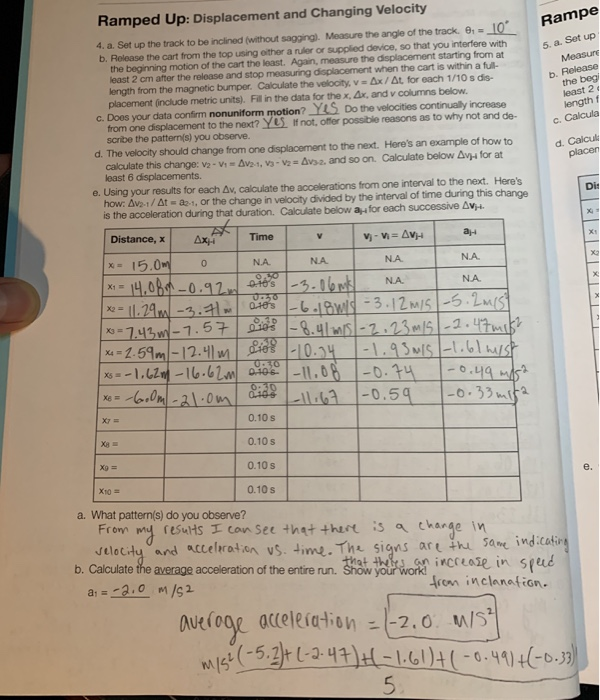 Ramped Up: Displacement and Changing Velocity
4. a. Set up the track to be inclined (without sagging). Measure the angle of the track. θ₁ = 10°
b. Release the cart from the top using either a ruler or supplied device, so that you interfere with
the beginning motion of the cart the least. Again, measure the displacement starting from at
least 2 cm after the release and stop measuring displacement when the cart is within a full-
length from the magnetic bumper. Calculate the velocity, v = Δx / Δt, for each 1/10 s dis-
placement (include metric units). Fill in the data for the x, Δx, and v columns below.
c. Does your data confirm nonuniform motion? Yes Do the velocities continually increase
from one displacement to the next? Yes If not, offer possible reasons as to why not and de-
scribe the pattern(s) you observe.
d. The velocity should change from one displacement to the next. Here's an example of how to
calculate this change: v₂ - v₁ = Δv₂-₁, v₃ - v₂ = Δv₃-₂, and so on. Calculate below Δvⱼ-ᵢ for at
least 6 displacements.
e. Using your results for each Δv, calculate the accelerations from one interval to the next. Here's
how: Δv₂-₁ / Δt = a₂-₁, or the change in velocity divided by the interval of time during this change
is the acceleration during that duration. Calculate below aⱼ-ᵢ for each successive Δvⱼ-ᵢ.
Δx
Distance, x Δxⱼ-ᵢ Time v vⱼ - vᵢ = Δvⱼ-ᵢ aⱼ-ᵢ
xᵢ = 15.0m 0 N.A. N.A. N.A. N.A.
x₁ = 14.08m -0.92m 0.30 0.10 s -3.06m/s N.A. N.A.
x₂ = 11.29m -3.71m 0.30 0.10 s -6.18m/s -3.12m/s -5.2m/s²
x₃ = 7.43m -7.57 0.30 0.10 s -8.41m/s -2.23m/s -2.47m/s²
x₄ = 2.59m -12.41m 0.30 0.10 s -10.34 -1.93m/s -1.61m/s²
x₅ = -1.62m -16.62m 0.30 0.10 s -11.08 -0.74 -0.49 m/s²
x₆ = -6.0m -21.0m 0.30 0.10 s -11.67 -0.59 -0.33m/s²
x₇ = 0.10 s
x₈ = 0.10 s
x₉ = 0.10 s
x₁₀ = 0.10 s
a. What pattern(s) do you observe?
From my results I can see that there is a change in
velocity and acceleration vs. time. The signs are the same indicating
that there's an increase in speed
b. Calculate the average acceleration of the entire run. Show your work!
from inclanation.
a₁ = -2.0 m/s2
average acceleration = -2.0 m/s²
m/s² (-5.2)+(-2.47)+(-1.61)+(-0.49)+(-0.33)
5
Rampe
5. a. Set up
Measure
b. Release
the beg
least 2
length f
c. Calcula
d. Calcula
placem
Dis
e.